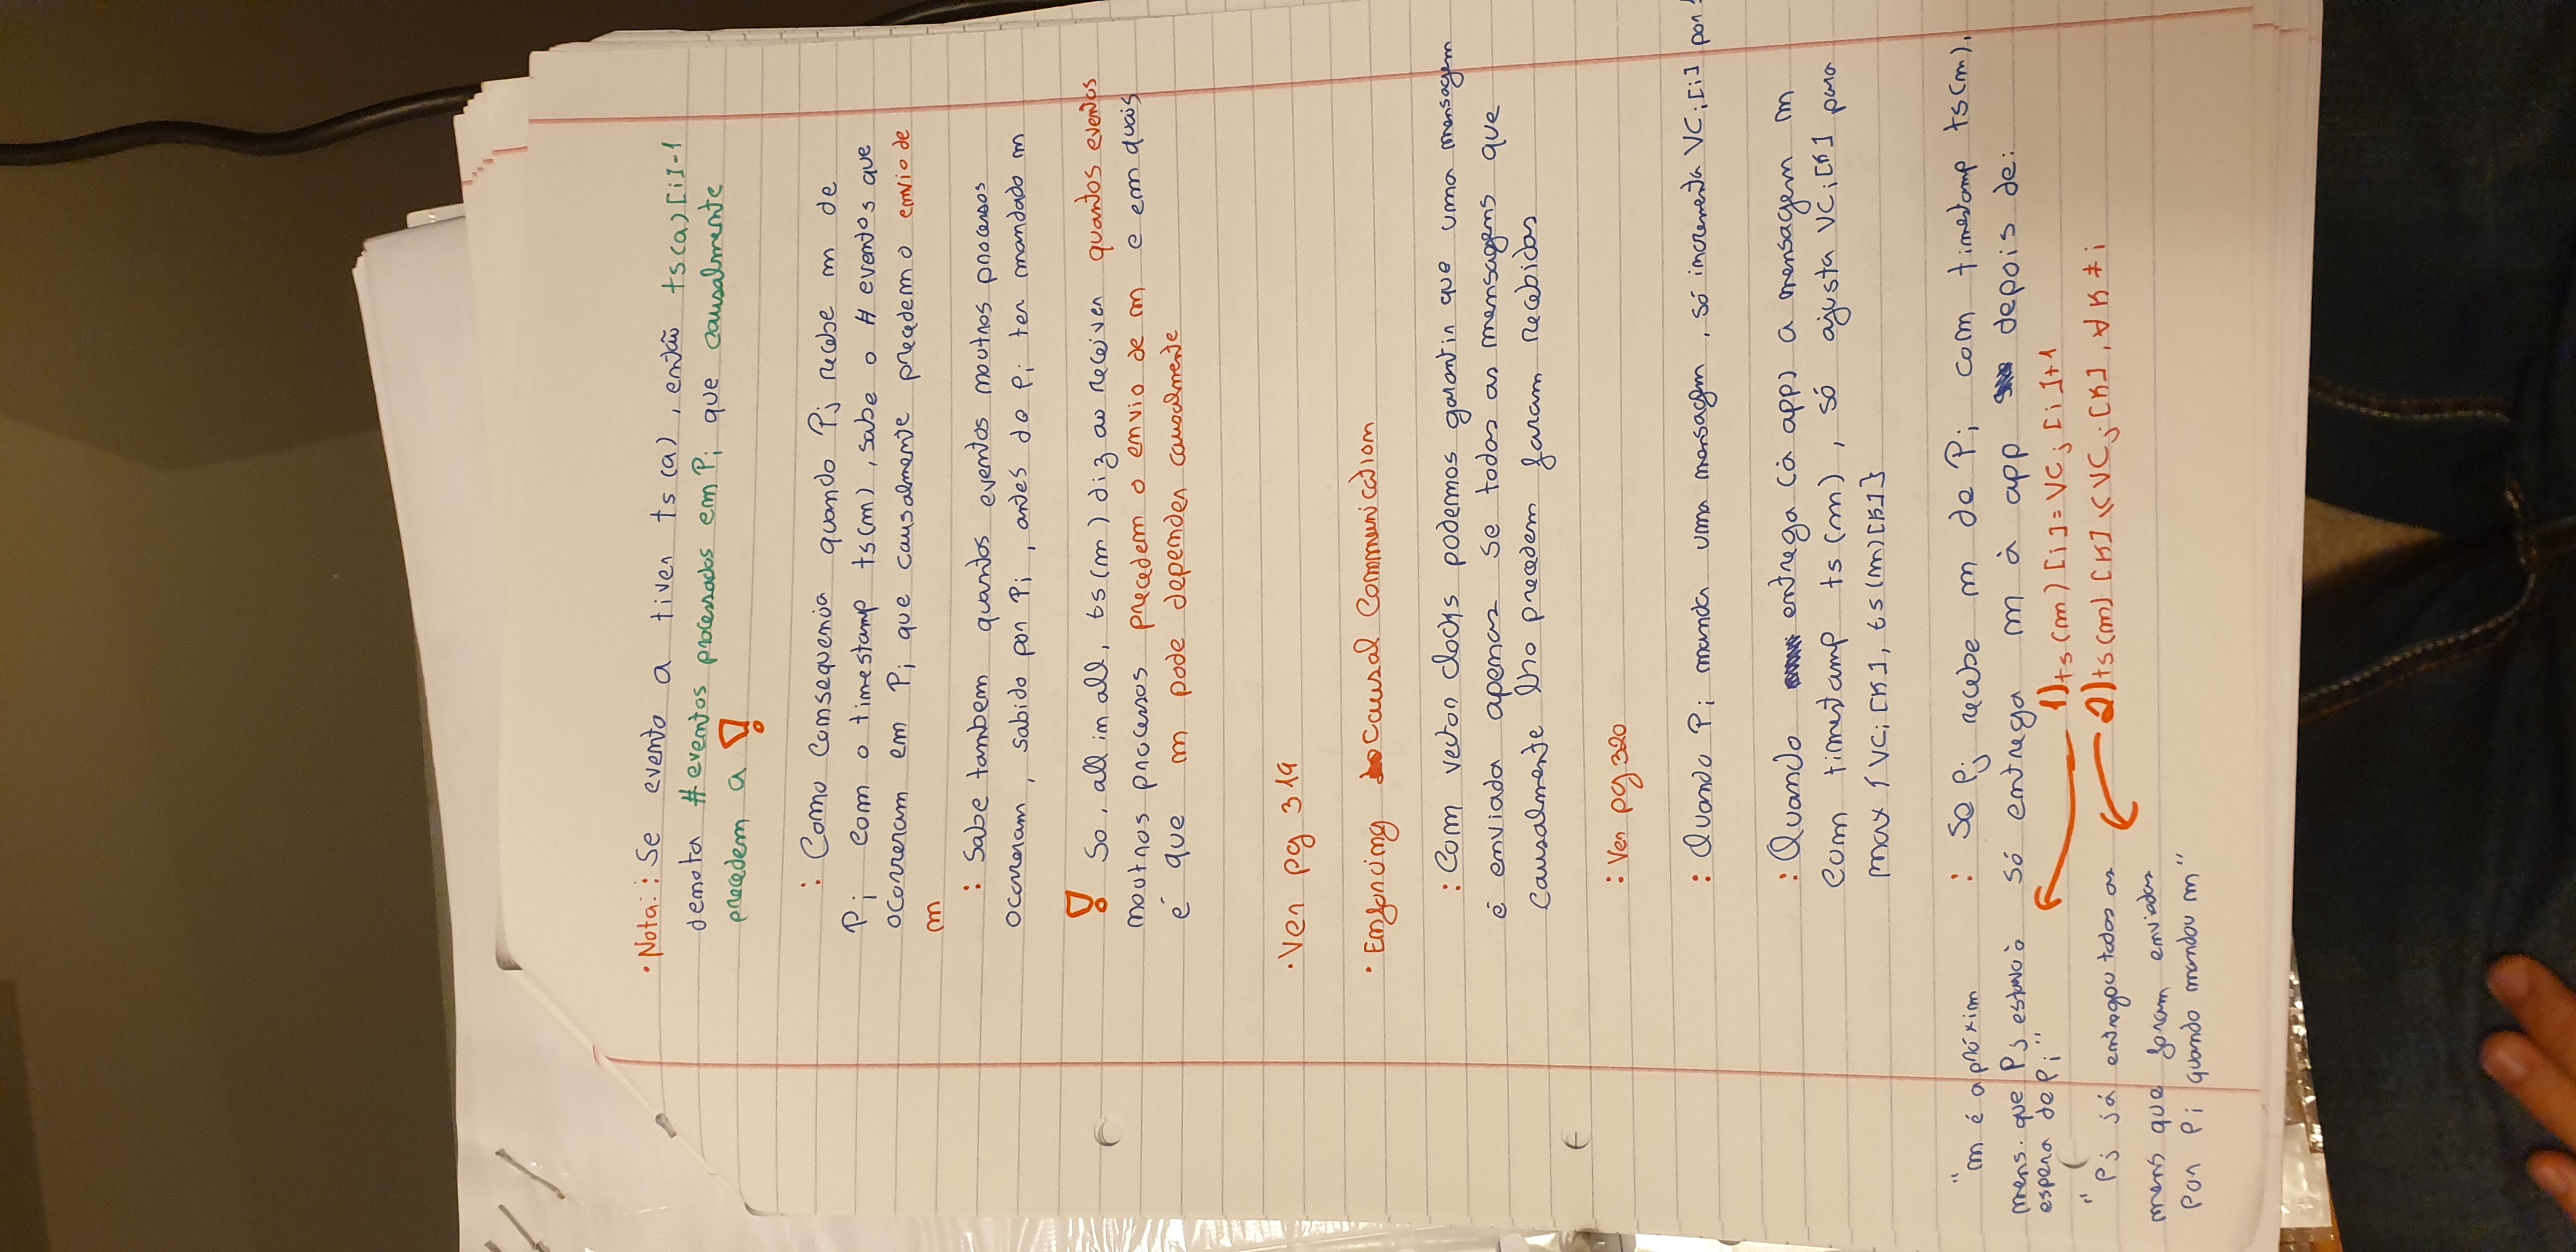 • Nota: : Se evento a tiver ts(a), então ts(a)[i]-1
denota #eventos processados em Pi que causalmente
precedem a !
: Como consequencia quando Pj recebe m de
Pi com o timestamp ts(m), sabe o # eventos que
ocorreram em Pi que causalmente precedem o envio de
m
: Sabe tambem quantos eventos noutros processos
ocorreram, sabido por Pi, antes de Pi ter mandado m
! So, all in all, ts(m) diz ao receiver quantos eventos
noutros processos precedem o envio de m e em quais
é que m pode depender causalmente
• Ver pg 319
• Enforcing Causal Communication
: Com vector clocks podemos garantir que uma mensagem
é enviada apenas se todas as mensagens que
causalmente lho precedem foram recebidas
: Ver pg 320
: Quando Pi manda uma mensagem, só incrementa VCi[i] por 1
: Quando entrega (à app) a mensagem m
com timestamp ts(m), só ajusta VCi[K] para
max {VCi[K], ts(m)[K]}
: Se Pj recebe m de Pi com timestamp ts(m),
só entrega m à app depois de:
1) ts(m)[i] = VCj[i]+1
2) ts(m)[K] ≤ VCj[K], ∀ K ≠ i
"m é a próxim
mens. que Pj estava à
espera de Pi"
"Pj já entregou todas as
mens que foram enviadas
por Pi quando mandou m"